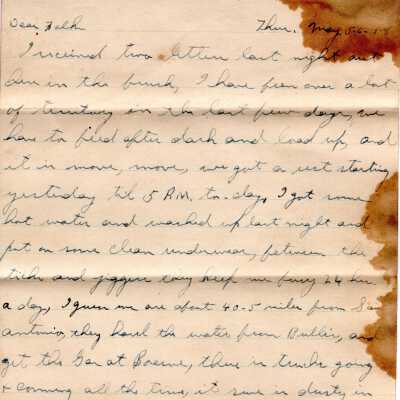 Dear Folks Thur. May
I received two letters last night out
here in the brush, I have been over a lot
of territory in the last few days, we
have to feed after dark and load up, and
it is move, move, we got a rest starting
yesterday til 5 A.M. to-day, I got some
hot water and washed up last night and
put on some clean underwear, between the
ticks and jiggers they keep me busy 24 hrs
a day, I guess we are about 40-5 miles from San
Antonio, they haul the water from Bullis, and
get the Gas at Boerne, there is trucks going
+ comming all the time, it sure is dusty in